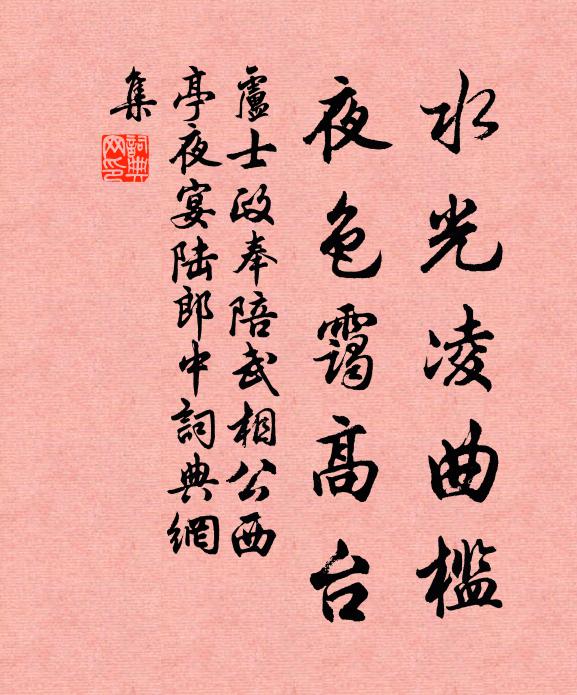 水光凌曲槛
夜色霭高台
盧士政奉陪武相公西
亭夜宴陆郎中詞典網
集
詞典网印